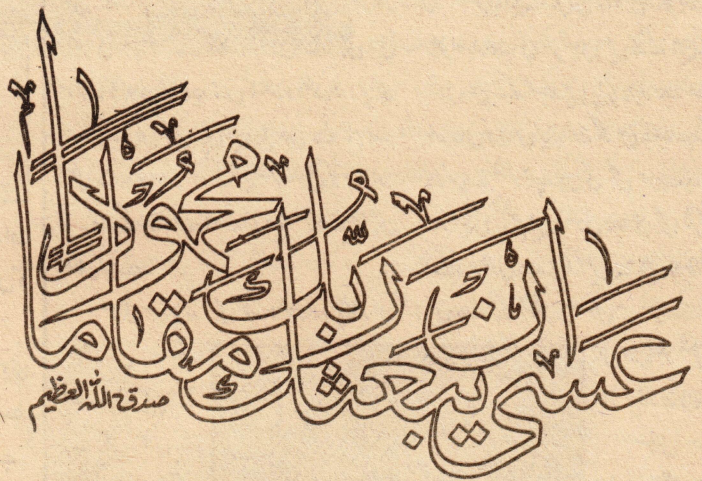 عسى ان يبعثك ربك مقاما محمودا
صدق الله العظيم